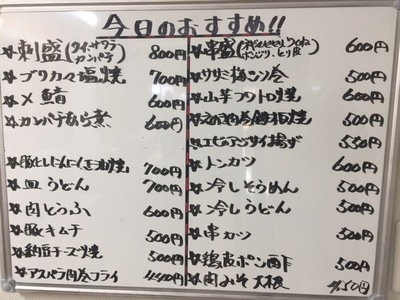 今日のおすすめ!!
刺盛(タイ、サワラ カンパチ) 800円
ブリカマ塩焼 700円
〆鯖 600円
カンパチあら煮 600円
豚とにんにく玉油焼 700円
皿うどん 700円
肉どうふ 600円
豚キムチ 500円
納豆チーズ焼 500円
アスパラ肉巻フライ 450円
串盛 600円
ササミ梅シソ巻 500円
山芋フワトロ焼 600円
500円
エビアンサイ揚ゲ 550円
トンカツ 600円
冷しそうめん 500円
冷しうどん 500円
串カツ 500円
鶏皮ポン酢 500円
肉みそ大根 450円